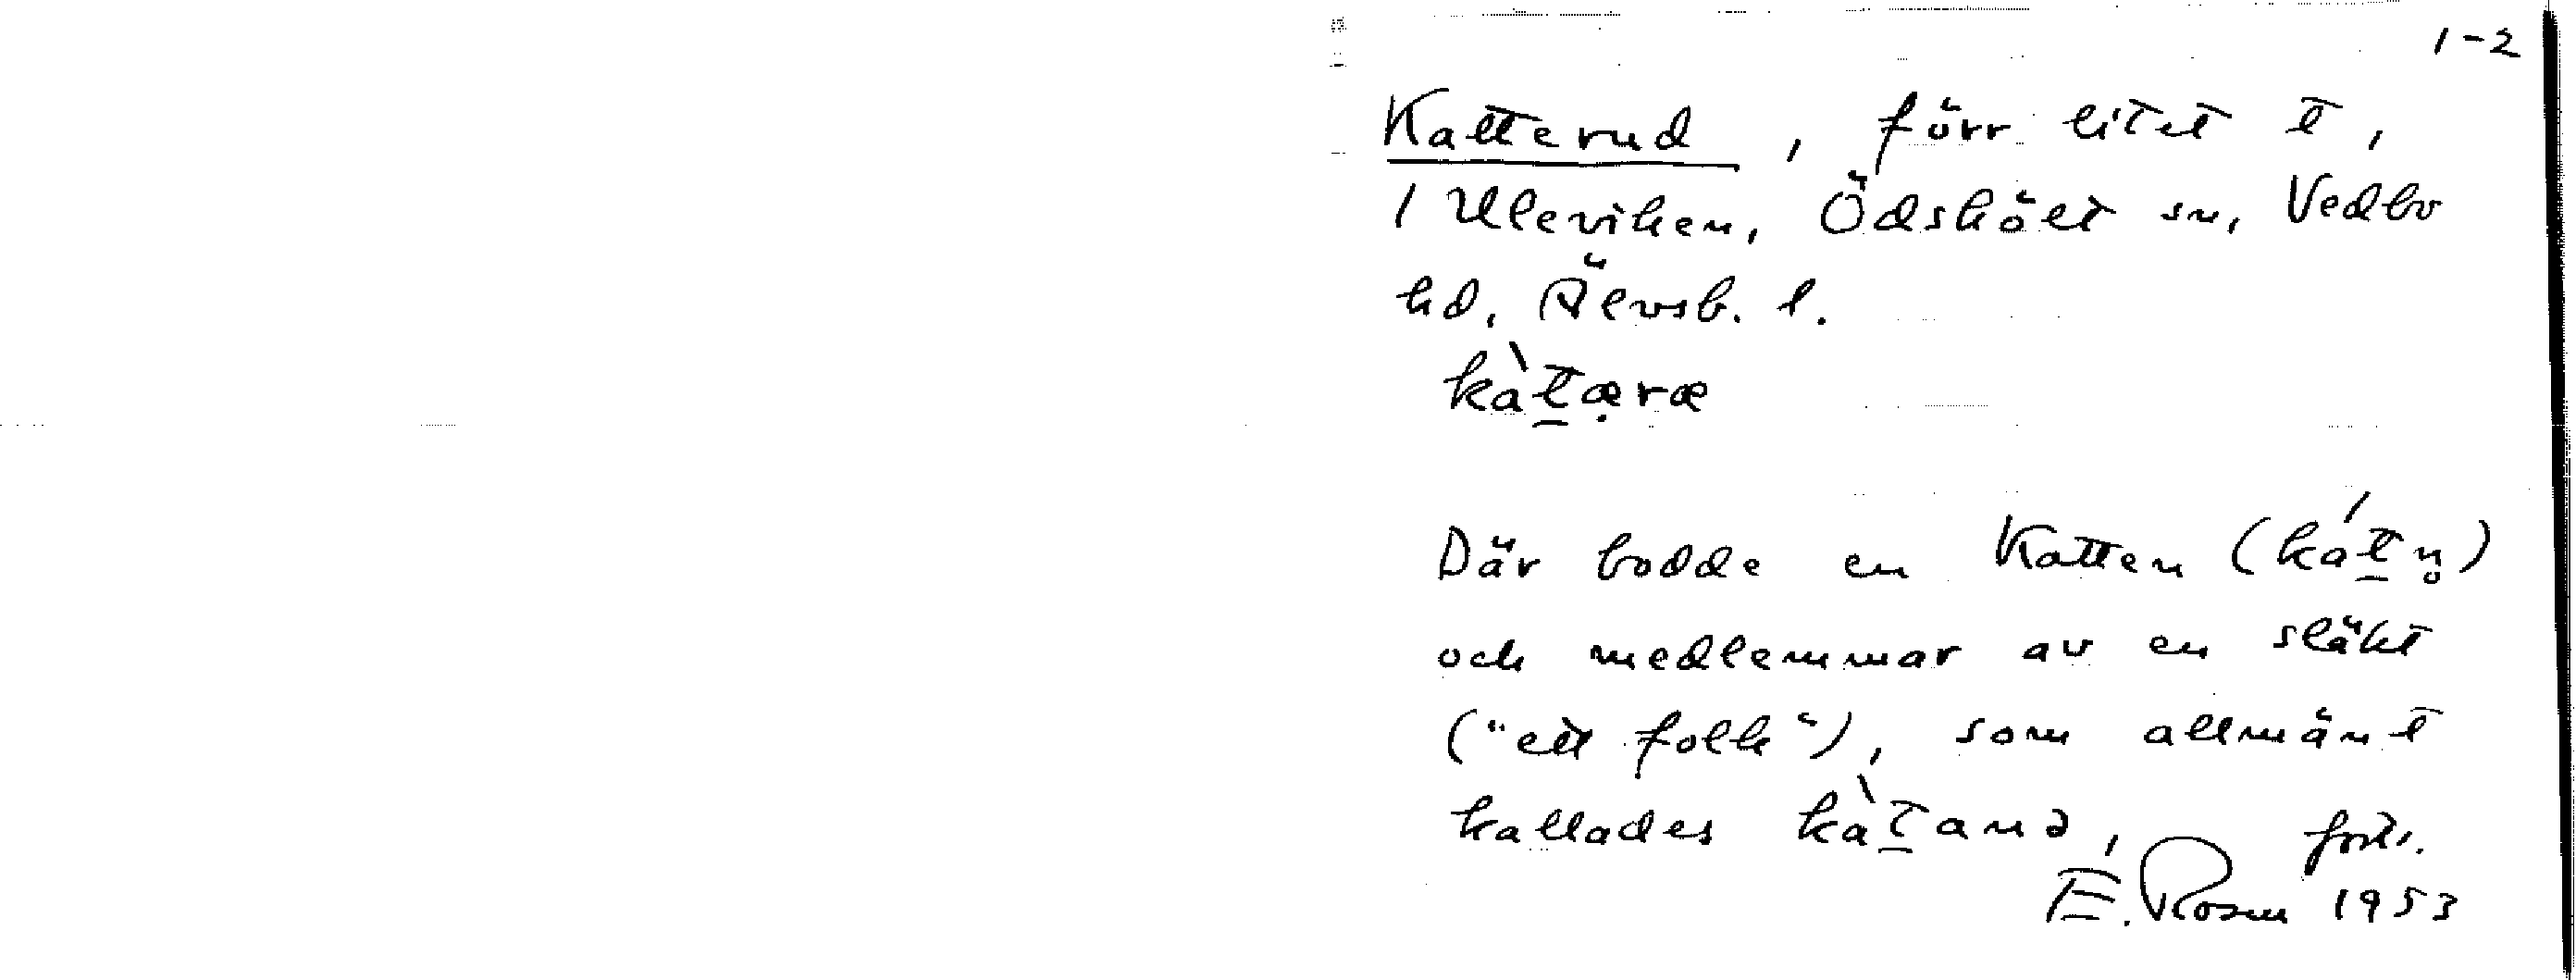 1-2
Katterud, förr litet t,
/ Uleviken, Ödskölt sn, Vedbo
hd, Älvsb. l.
kàt̠æ̣ræ
Där bodde en Katten (kát̠n̥)
och medlemmar av en släkt
("ett folk"), som allmänt
kallades kàt̠anə, forts.
E. Rosen 1953